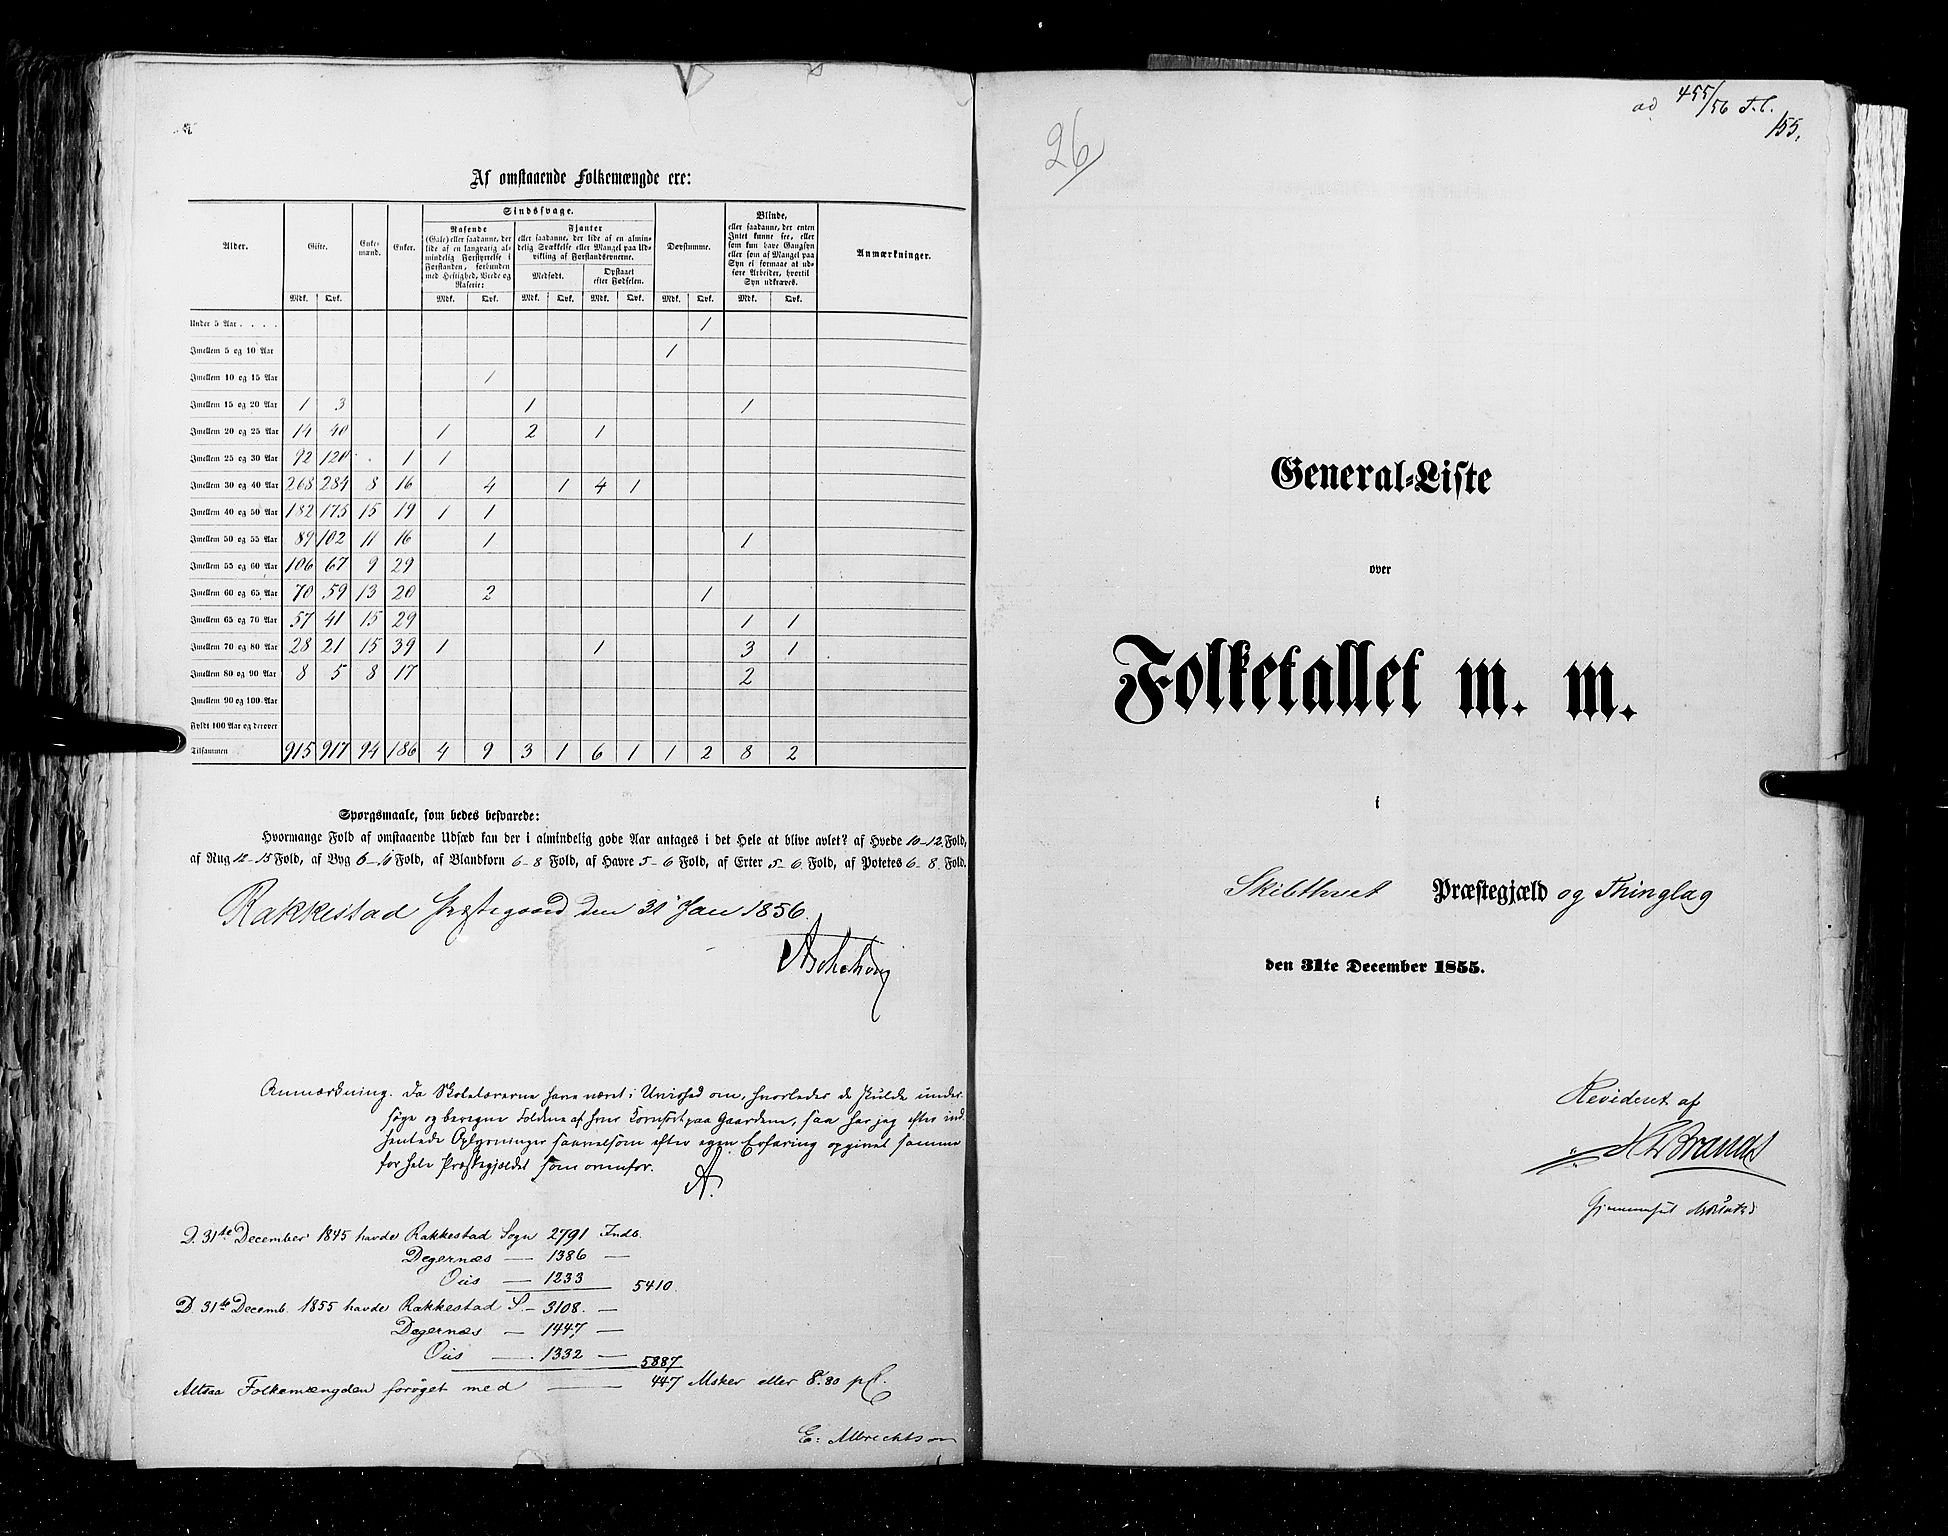 Af omstaaende Folkemængde ere:
Alder. Gifte. Enkemænd. Enker. Sindssvage. Døvstumme. Blinde, eller saadanne, der enten Intet kunne see, eller som kun have Gangsyn eller som af Mangel paa Syn ei formaae at udføre Arbeider, hvortil Syn udkræves. Anmærkninger.
Rasende (Gale) eller saadanne, der lide af en langvarig almindelig Forstyrrelse i Forstanden, forbunden med Heftighed, Vrede og Raserie:
Fjanter eller saadanne, der lide af en almindelig Svækkelse eller Mangel paa Udvikling af Forstandsevnerne.
Medfødt. Opstaaet efter Fødselen.
Mdk. Qvk. Mdk. Qvk. Mdk. Qvk. Mdk. Qvk. Mdk. Qvk. Mdk. Qvk.
Under 5 Aar . . . . 1
Imellem 5 og 10 Aar 1
Imellem 10 og 15 Aar 1
Imellem 15 og 20 Aar 1 3 1 1
Imellem 20 og 25 Aar 14 40 1 2 1
Imellem 25 og 30 Aar 92 120 . 1 1
Imellem 30 og 40 Aar 268 284 8 16 4 1 4 1
Imellem 40 og 50 Aar 182 175 15 19 1 1
Imellem 50 og 55 Aar 89 102 11 16 1 1
Imellem 55 og 60 Aar 106 67 9 29
Imellem 60 og 65 Aar 70 59 13 20 2 1
Imellem 65 og 70 Aar 57 41 15 29 1 1
Imellem 70 og 80 Aar 28 21 15 39 1 1 3 1
Imellem 80 og 90 Aar 8 5 8 17 2
Imellem 90 og 100 Aar
Fyldt 100 Aar og derover
Tilsammen 915 917 94 186 4 9 3 1 6 1 1 2 8 2
Spørgsmaale, som bedes besvarede:
Hvormange Fold af omstaaende Udsæd kan der i almindelig gode Aar antages i det Hele at blive avlet? af Hvede 10-12 Fold,
af Rug 12-15 Fold, af Byg 6- Fold, af Blandkorn 6-8 Fold, af Havre 5-6 Fold, af Erter 5-6 Fold, af Potetes 6-8 Fold.
Rakkestad Præstegaard den 31 Jan 1856.
Aschehoug
Anmærkning. Da Skolelærerne have været i Uvished om, hvorledes de skulde under-
søge og beregne Foldene af hver Kornsort paa Gaardene, saa har jeg efter ind-
hentede Oplysninger saavelsom efter egen Erfaring opgivet samme
for hele Præstegjældet som ovenfor.
A.
D. 31te December 1845 havde Rakkestad Sogn 2791 Indb.
Degernæs — 1386 —
Øiis — 1233 5410.
D. 31te Decemb. 1855 havde Rakkestad S — 3108. —
Degernæs — 1447 —
Øiis — 1332 — 5887
Altsaa Folkemængden forøget med — 447 Msker eller 8.30 pC.
E. Albrechtson
26
ad 455/56 F.C.
155.
General-Liste
over
Folketallet m. m.
i
Skibthvet Præstegjæld og Thinglag
den 31te December 1855.
Revideret af
Brandt
Gjennemset